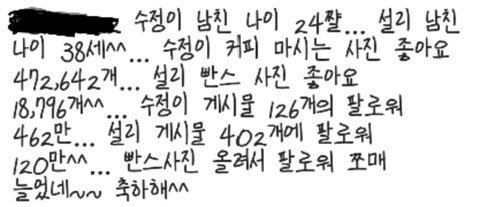 수정이 남친 나이 24짤... 설리 남친
나이 38세^^... 수정이 커피 마시는 사진 좋아요
472,642개... 설리 빤스 사진 좋아요
18,796개^^... 수정이 게시물 126개의 팔로워
462만... 설리 게시물 402개에 팔로워
120만^^... 빤스사진 올려서 팔로워 쪼매
늘었네~~ 축하해^^